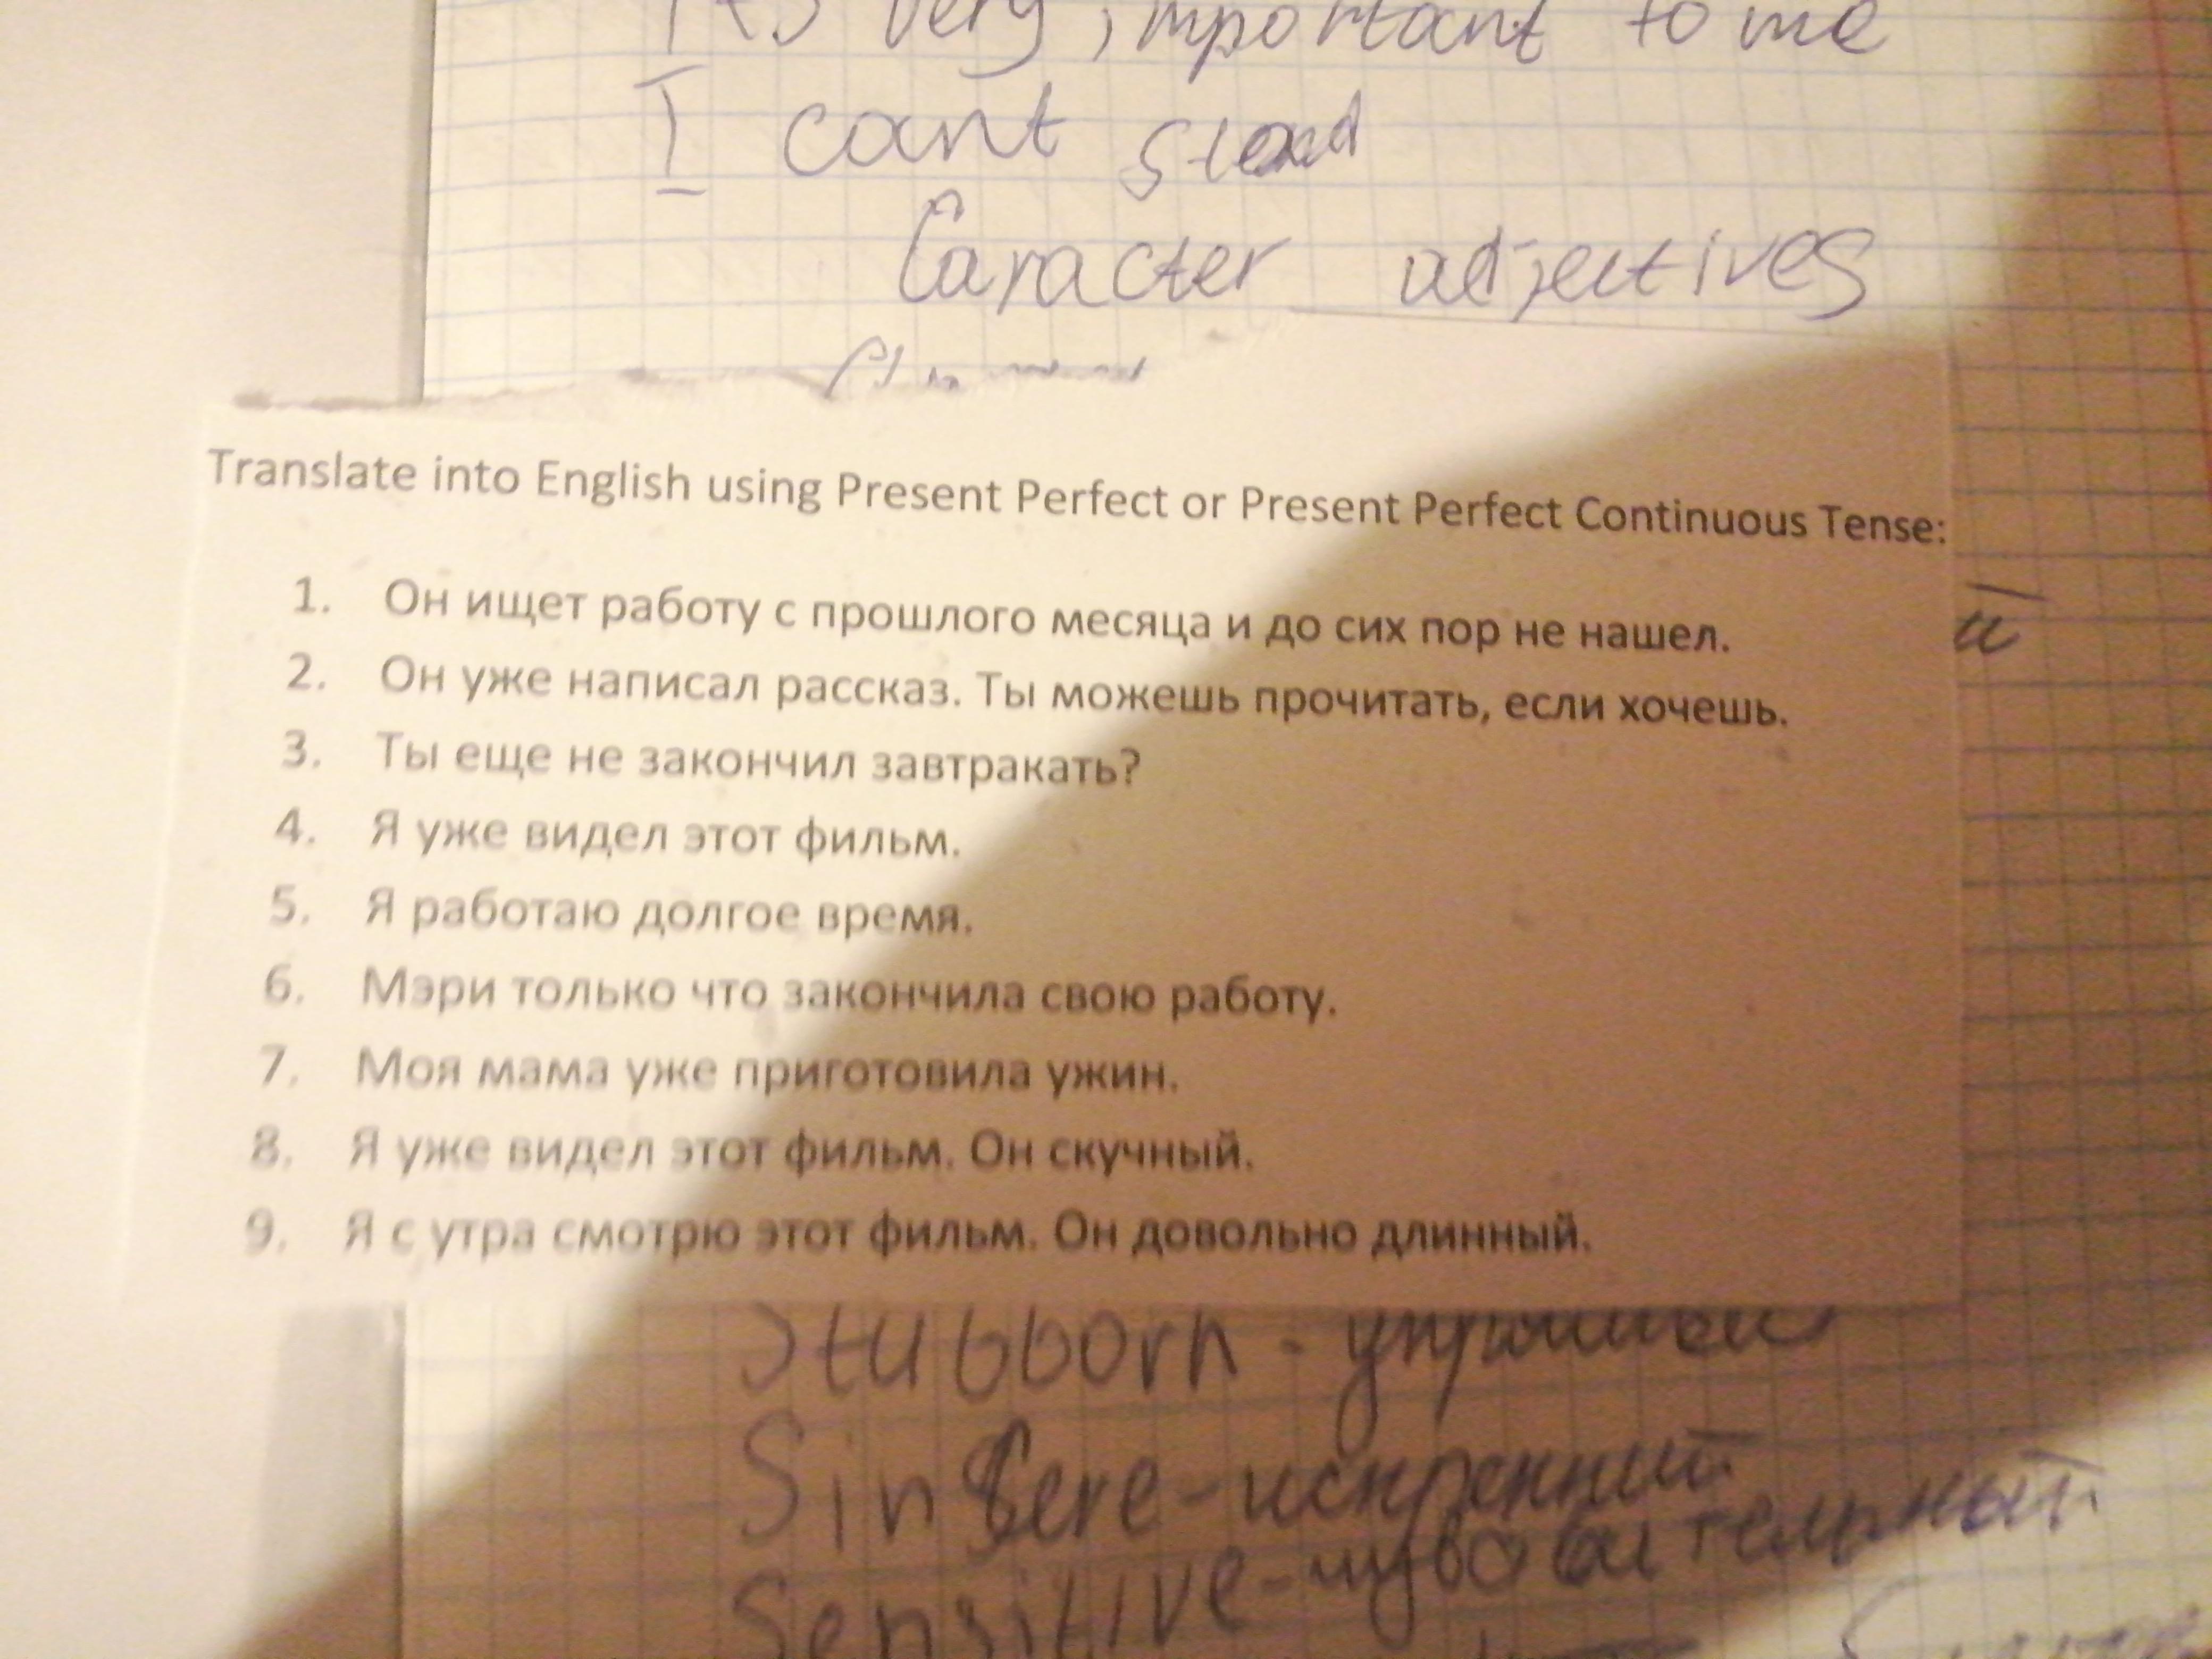 Its very important to me
I cant stand
Caracter adjectives
Translate into English using Present Perfect or Present Perfect Continuous Tense:
1. Он ищет работу с прошлого месяца и до сих пор не нашел.
2. Он уже написал рассказ. Ты можешь прочитать, если хочешь.
3. Ты еще не закончил завтракать?
4. Я уже видел этот фильм.
5. Я работаю долгое время.
6. Мэри только что закончила свою работу.
7. Моя мама уже приготовила ужин.
8. Я уже видел этот фильм. Он скучный.
9. Я с утра смотрю этот фильм. Он довольно длинный.
Stubborn - упрямый
Sincere - искренний
Sensitive - чувствительный